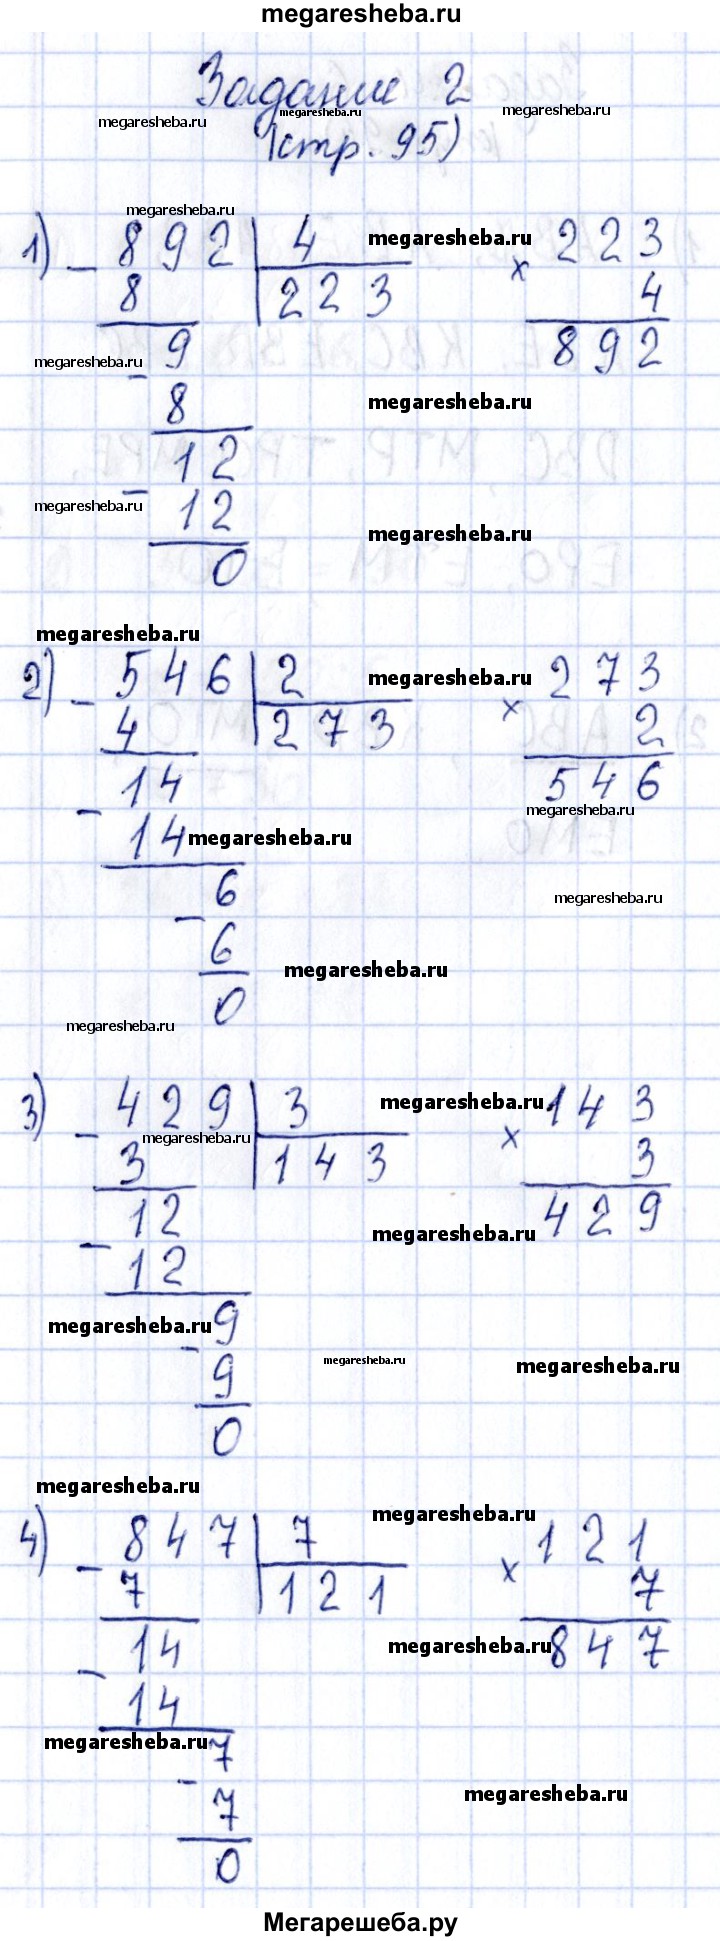 megaresheba.ru
Задание 2
megaresheba.ru megaresheba.ru megaresheba.ru
(стр. 95)
megaresheba.ru
1) - 892 | 4 megaresheba.ru × 223
8 | 223 4
892
9
megaresheba.ru -
8 megaresheba.ru
12
megaresheba.ru -
12 megaresheba.ru
0
megaresheba.ru
2) - 546 | 2 megaresheba.ru × 273
4 | 273 2
546
14 megaresheba.ru
-
14 megaresheba.ru
6 megaresheba.ru
-
6 megaresheba.ru
0
megaresheba.ru
3) - 429 | 3 megaresheba.ru × 143
megaresheba.ru
3 | 143 3
429
12 megaresheba.ru
-
12
megaresheba.ru 9
- megaresheba.ru megaresheba.ru
9
0
megaresheba.ru
4) - 847 | 7 megaresheba.ru × 121
7 | 121 7
847
14 megaresheba.ru
-
14
megaresheba.ru 7
-
7 megaresheba.ru
0
Мегарешеба.ру